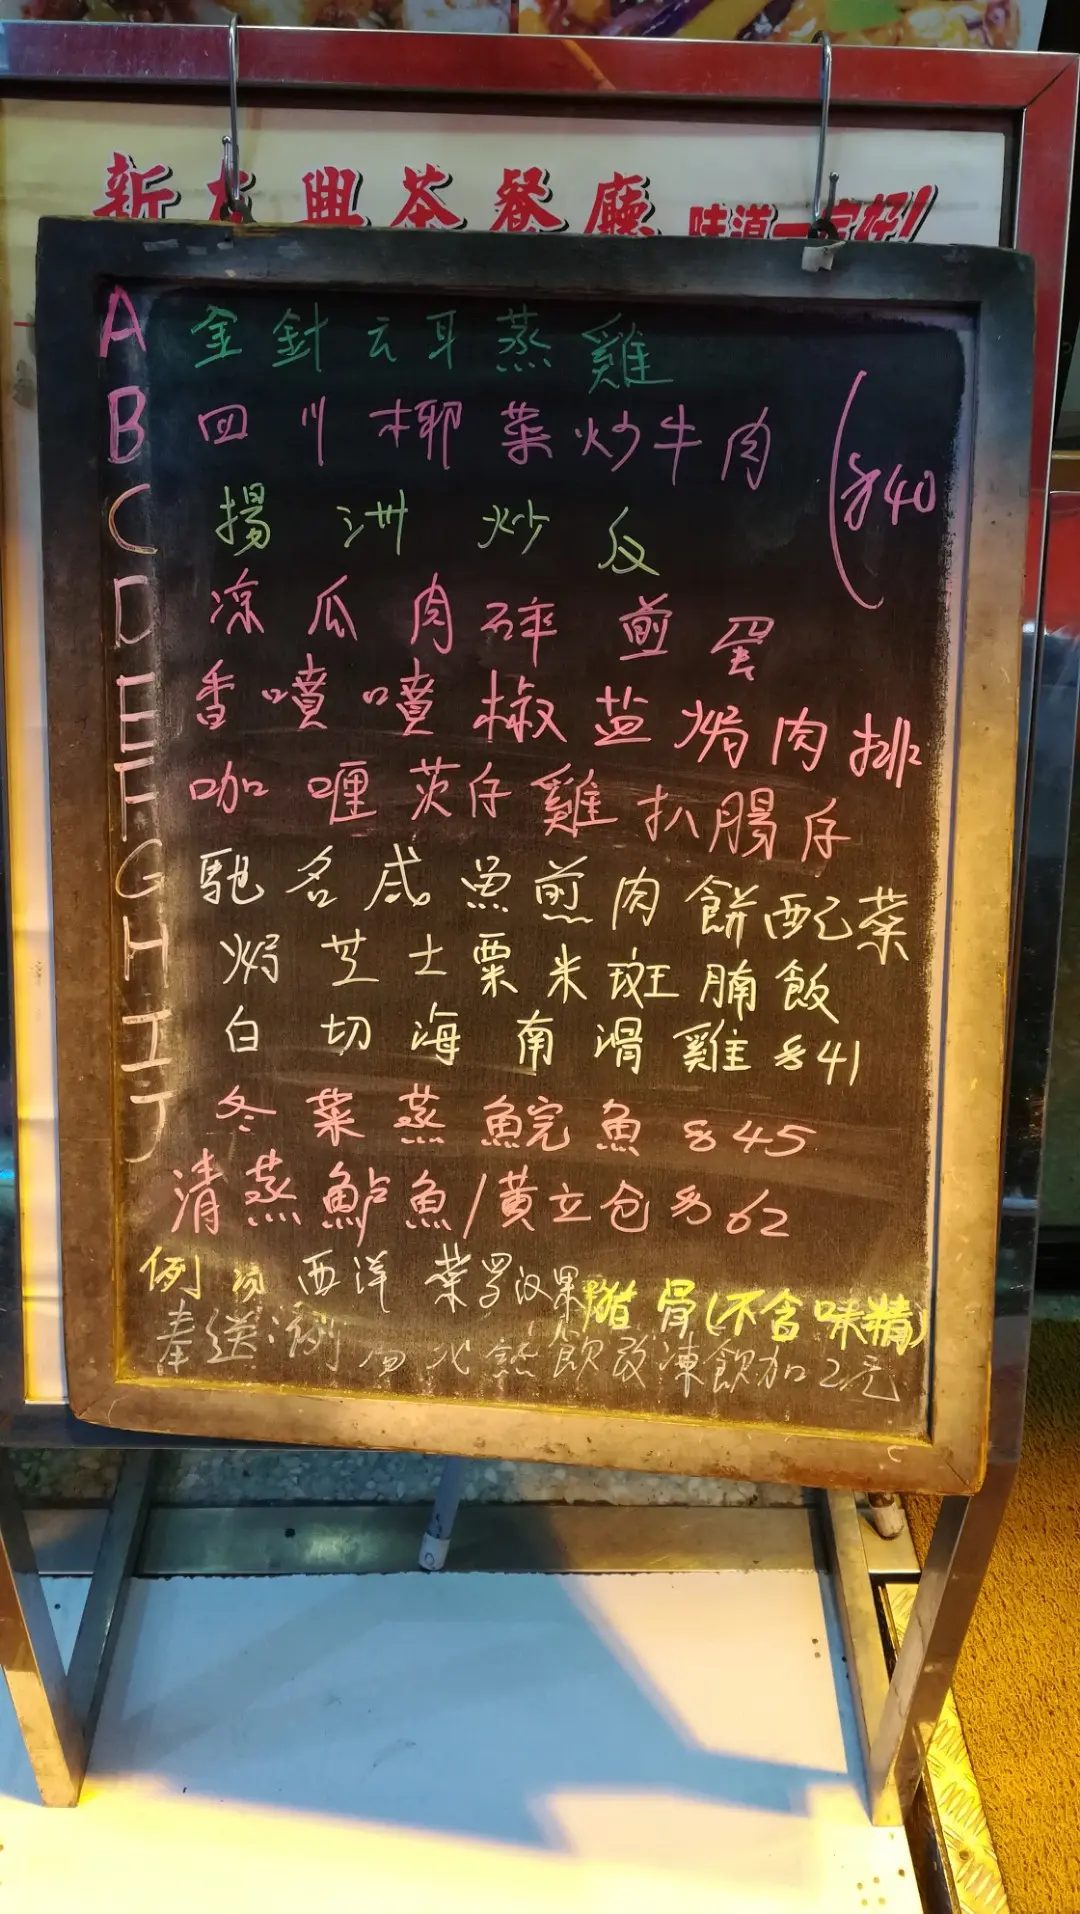 新大興茶餐廳 味道一定好!
A 金針云耳蒸雞
B 四川椰菜炒牛肉
$40
C 揚洲炒反
D 凉瓜肉碎煎蛋
E 香噴噴椒盐焗肉排
F 咖喱茨仔雞扒腸仔
G 馳名咸魚煎肉餅配菜
H 焗芝士粟米斑腩飯
I 白切海南滑雞 $41
J 冬菜蒸鯇魚 $45
清蒸鱸魚/黃立仓 $62
例汤 西洋菜罗汉果猪骨(不含味精)
奉送 热飲改凍飲加2元